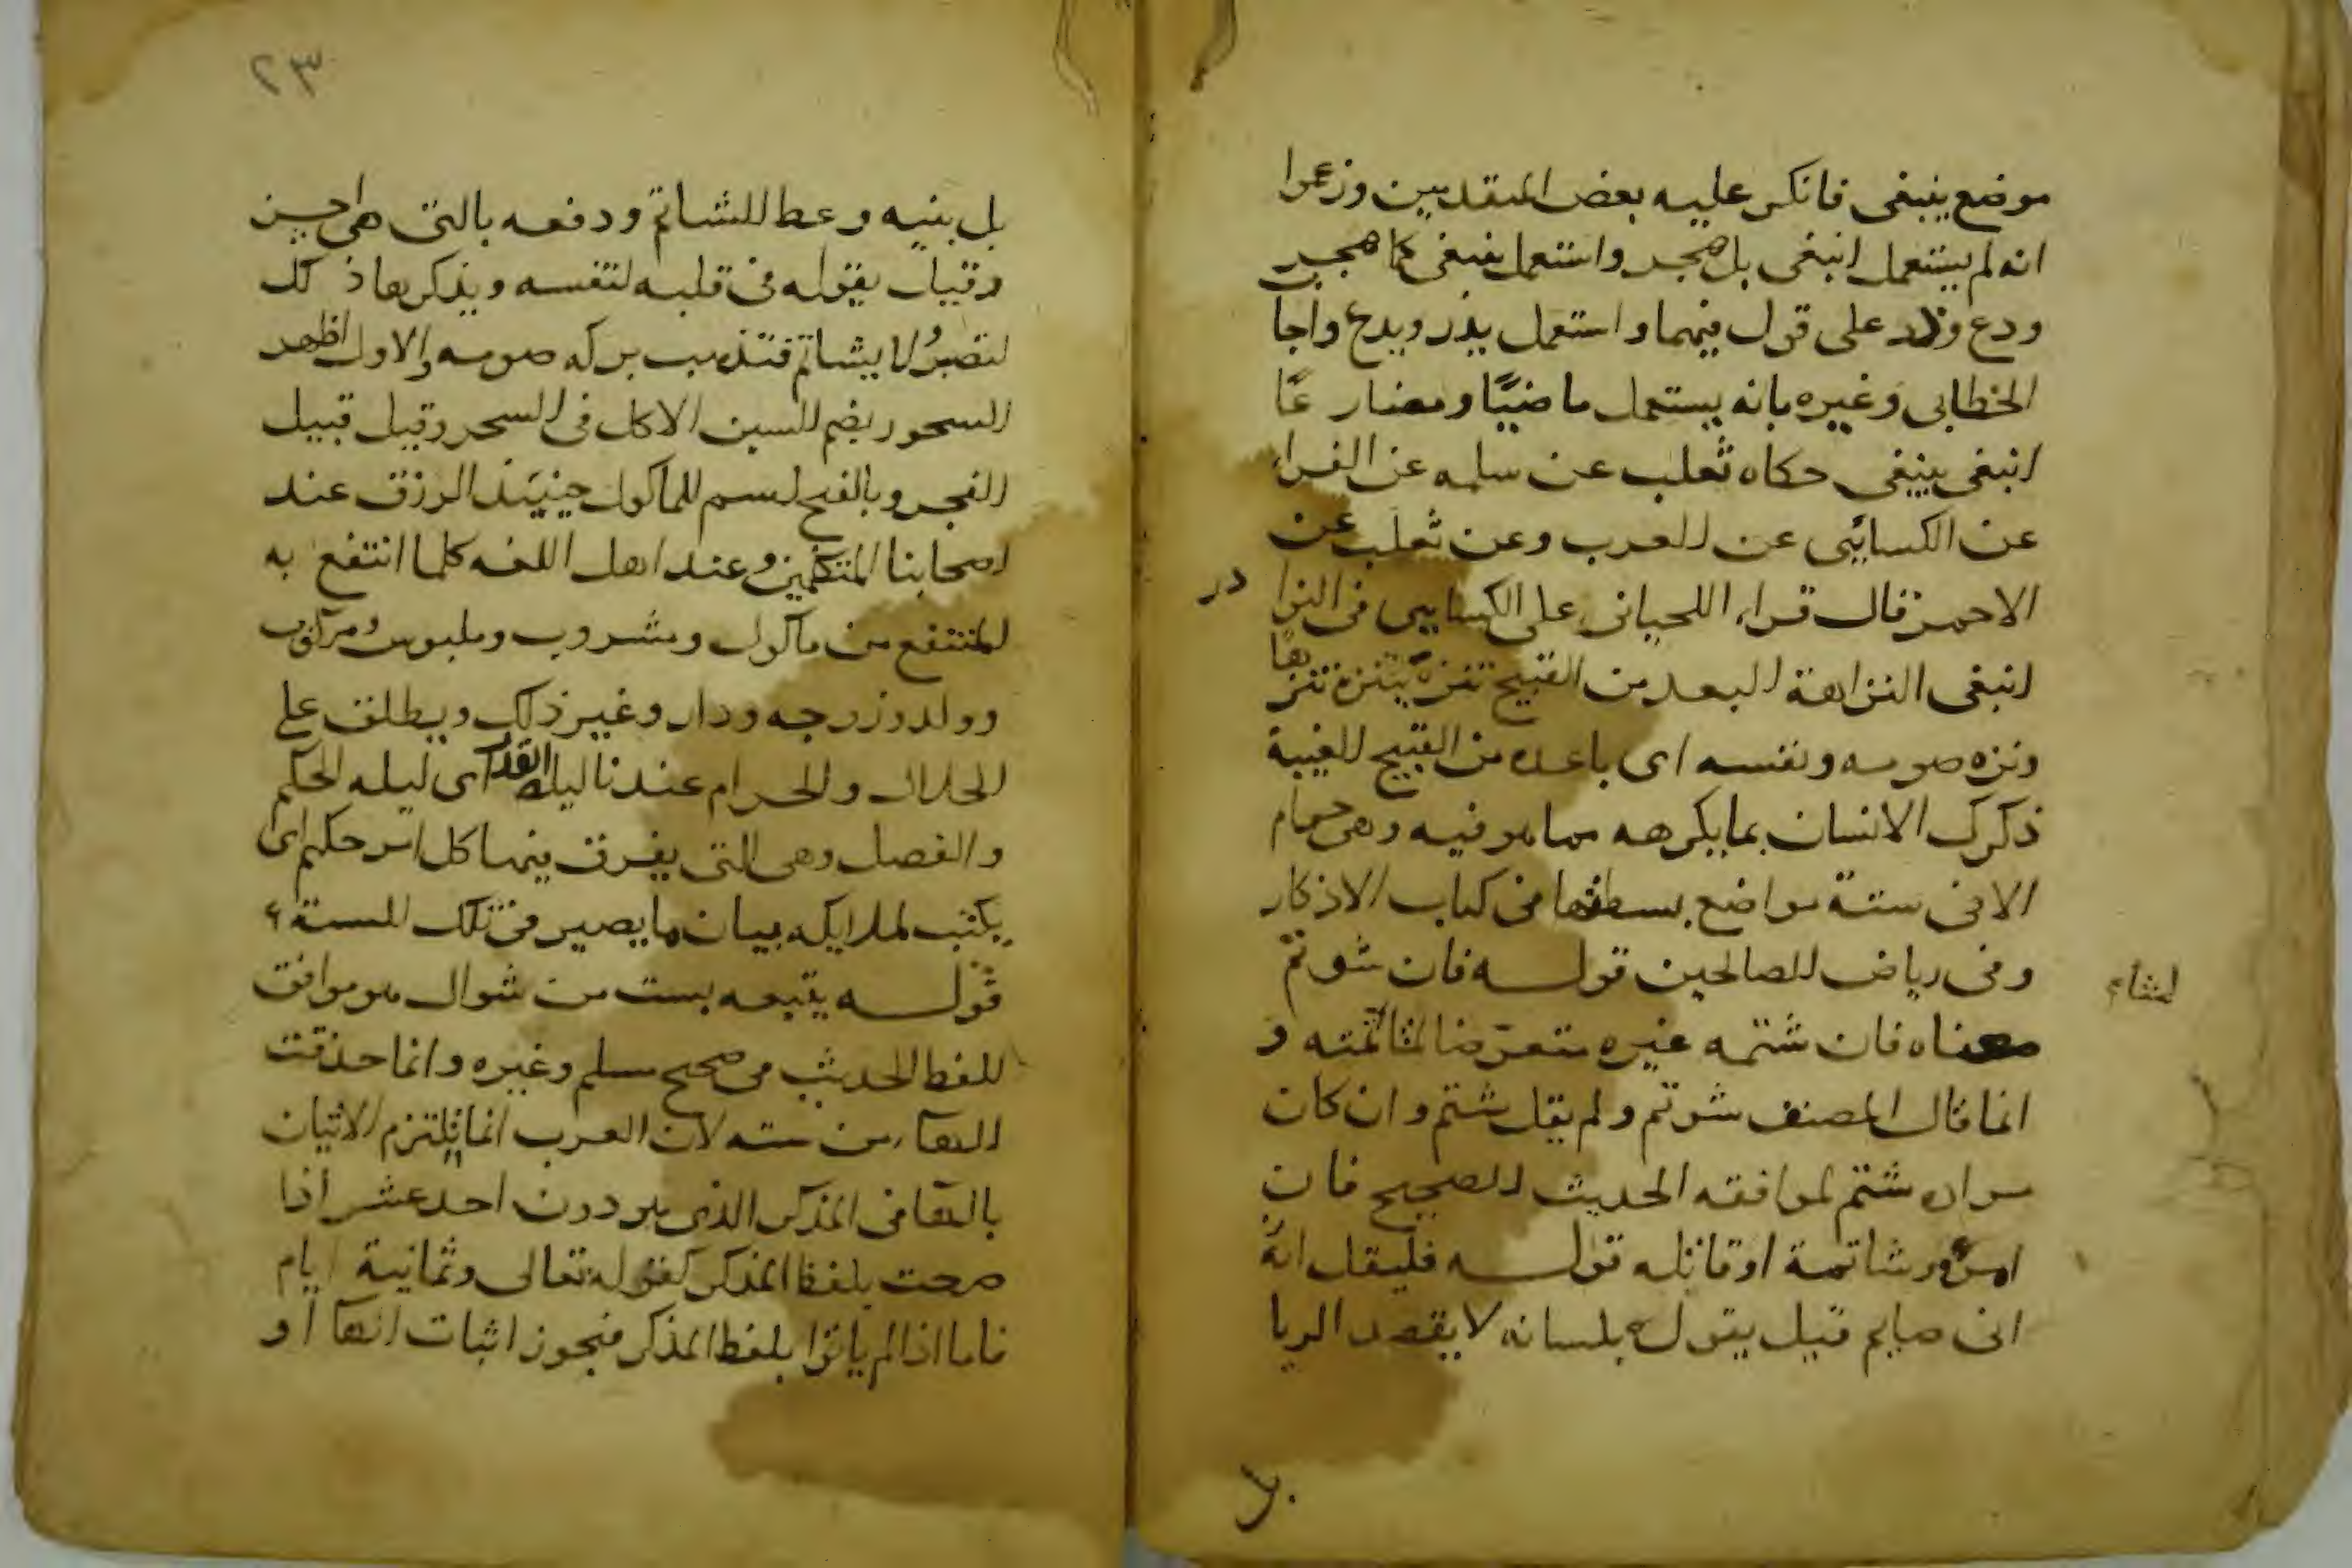 موضع ينبغى فانكر عليه بعض المتقدمين وزعموا
انه لم يستعمل انبغى بل هجر واستعمل ينبغى كما هجر
ودع وذر على قول فيهما واستعمل يذر ويدع واجا
الخطابى وغيره بانه يستعمل ماضيًا ومضارعًا
انبغى ينبغى حكاه ثعلب عن سلمه عن الفراء
عن الكسائى عن العرب وعن ثعلب عن
الاحمر قال قراء اللحيانى على الكسايى فى النوادر
انبغى النزاهة البعد من القبيح تنزه يتنزه تنزها
ونزه صومه ونفسه اى باعده من القبيح الغيبة
ذكرك الانسان بما يكرهه مما هو فيه وهى حرام
الا فى ستة مواضع بسطتها فى كتاب الاذكار
وفى رياض الصالحين قولــه فان شوتم
معناه فان شتمه غيره متعرضا لمشاتمته و
لمشاتم
انما قال المصنف شوتم ولم يقل شتم وان كان
مراده شتم لموافقه الحديث الصحيح فان
امرؤ شاتمة او قاتله قولــه فليقل انى
انى صايم قيل يقول بلسانه لا يقصد الريا
بل
٢٣
بل بنيه وعظ الشاتم ودفعه بالتى هى احسن
وقيل يقوله فى قلبه لنفسه ويذكرها ذلك
لتصبرُ ولا يشاتم فتذهب بركه صومه والاول اظهر
السحور بضم السين الاكل فى السحر وقيل قبيل
الفجر وبالفتح اسم للماكول حينيئذ الرزق عند
اصحابنا المتكلمين وعند اهل اللغه كلما انتفع به
المنتفع من ماكول ومشروب وملبوس ومركوب
وولد وزوجه ودار وغير ذلك ويطلق على
الحلال والحرام عندنا ليله القدر اى ليله الحكم
والفصل وهى التى يفرق فيها كل امر حكيم اى
يكتب لملايكه بيان ما يصير فى تلك السنة
قولــه يتبعه بست من شوال هو موافق
للفظ الحديث فى صحيح مسلم وغيره وانما حذفت
الهآء من سته لان العرب انما تلتزم الاتيان
بالهآ فى المذكر الذى هو دون احد عشر اذا
صحت بلفظ المذكر كقوله تعالى وثمانية ايام
فاما اذا لم ياتوا بلفظ المذكر فيجوز اثبات الهآ او